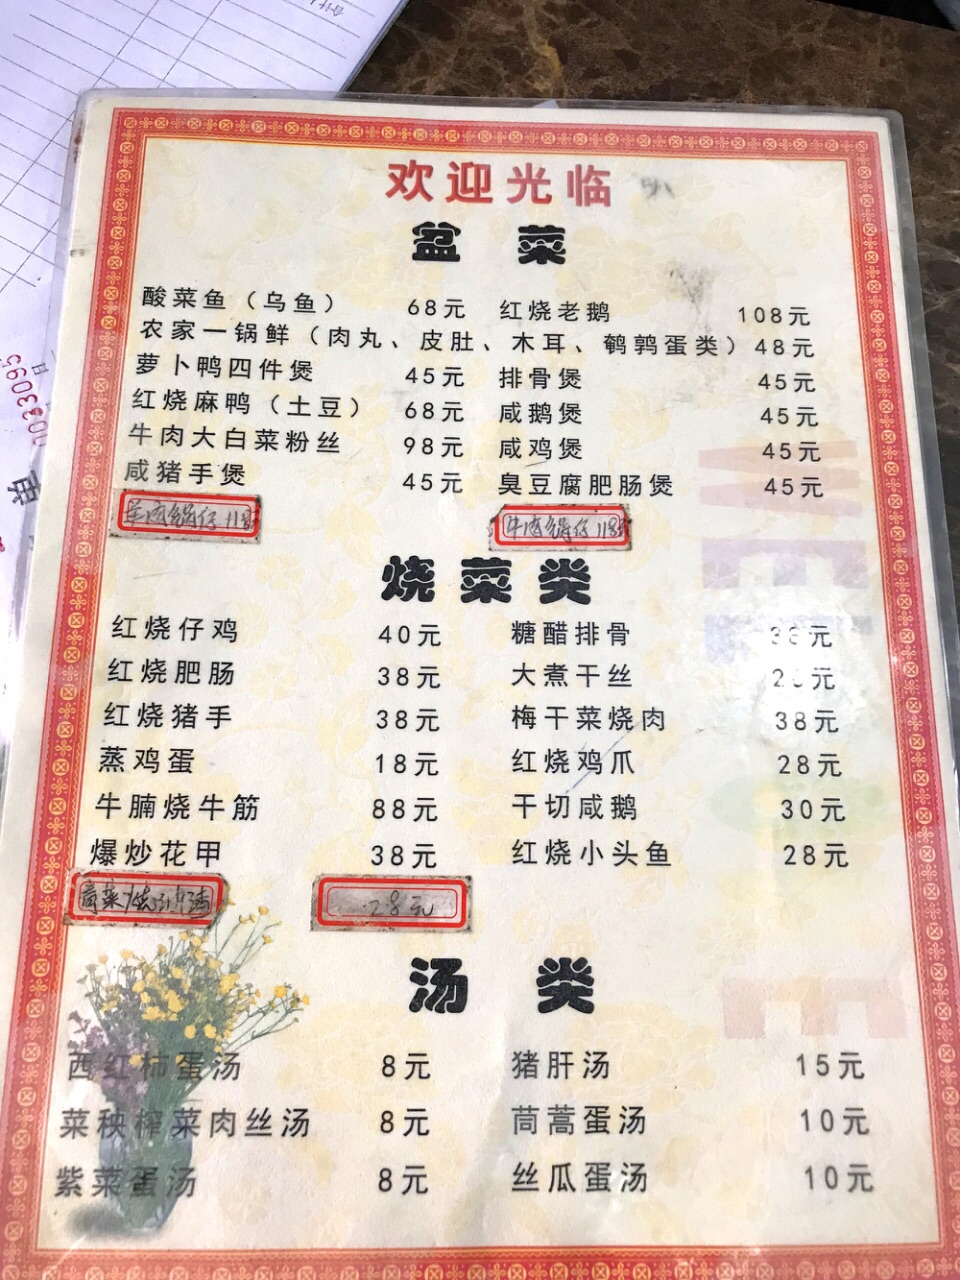 欢迎光临
盆 菜
酸菜鱼（乌鱼） 68元 红烧老鹅 108元
农家一锅鲜（肉丸、皮肚、木耳、鹌鹑蛋类）48元
萝卜鸭四件煲 45元 排骨煲 45元
红烧麻鸭（土豆） 68元 咸鹅煲 45元
牛肉大白菜粉丝 98元 咸鸡煲 45元
咸猪手煲 45元 臭豆腐肥肠煲 45元
羊肉锅仔 118 牛肉锅仔 118
烧菜类
红烧仔鸡 40元 糖醋排骨 元
红烧肥肠 38元 大煮干丝 元
红烧猪手 38元 梅干菜烧肉 38元
蒸鸡蛋 18元 红烧鸡爪 28元
牛腩烧牛筋 88元 干切咸鹅 30元
爆炒花甲 38元 红烧小头鱼 28元
28元
汤 类
西红柿蛋汤 8元 猪肝汤 15元
菜秧榨菜肉丝汤 8元 茼蒿蛋汤 10元
紫菜蛋汤 8元 丝瓜蛋汤 10元